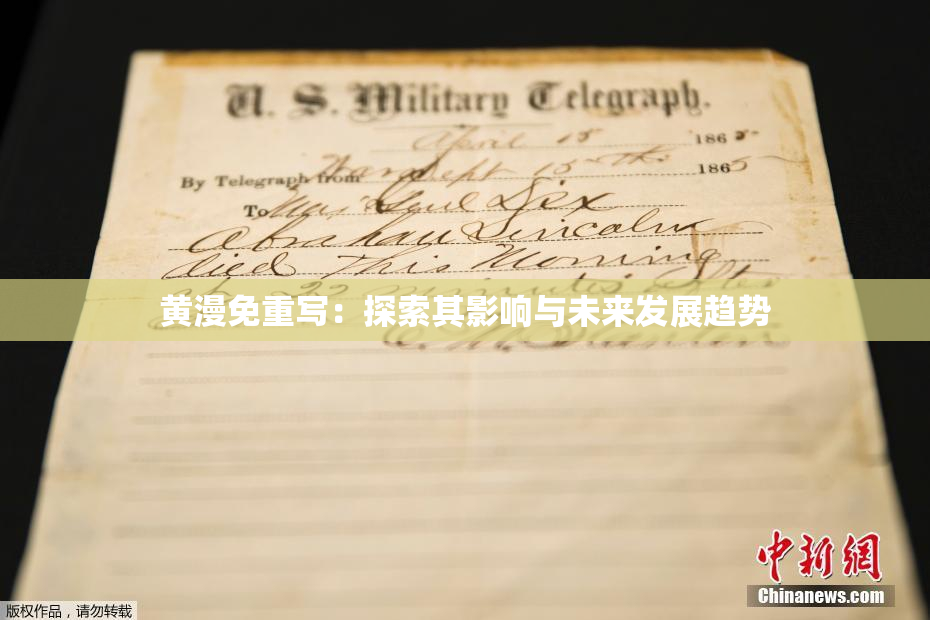 U. S. Military Telegraph.
April 15 1865
By Telegraph from War Dept 15th 1865
To Maj Genl Dix
Abraham Lincoln
died This Morning
at 22 minutes after
黄漫免重写：探索其影响与未来发展趋势
E. M. Stanton
中新网
Chinanews.com
版权作品，请勿转载